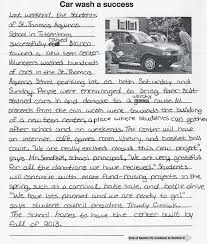 Car wash a success
Last weekend, the students
of St. Thomas Aquinas
School in Tottenham
successfully raised
toward a new teen center.
Volunteers washed hundreds
of cars in the St. Thomas
Aquinas School parking lot on both Saturday and
Sunday. People were encouraged to bring their dirt
stained cars in and donate to a worthy cause. All
proceeds from the car wash went towards the building
of a new teen center, a place where students can gather
after school and on weekends. The center will have
an internet café, games room, library, and basketball
court. "We are really excited about this new project",
says Mr. , school principal, "We are very grateful
for all the donations we have received." Students
will continue with more fund-raising projects in the
spring, such as a carnival, bake sale, and bottle drive.
"We have lots planned and we are ready to go!"
says student council president
The school hopes to have the center built by
fall of 2013.